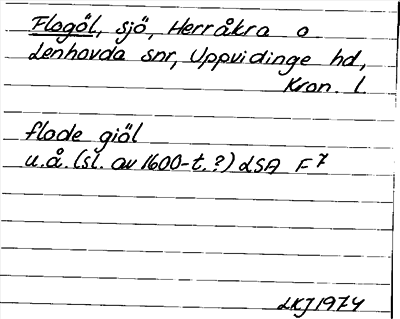 Flogöl, sjö, Herråkra o
Lenhovda snr, Uppvidinge hd,
Kron. l.
flode giöl
u.å. (sl. av 1600-t.?) LSA F 7
LKJ 1974